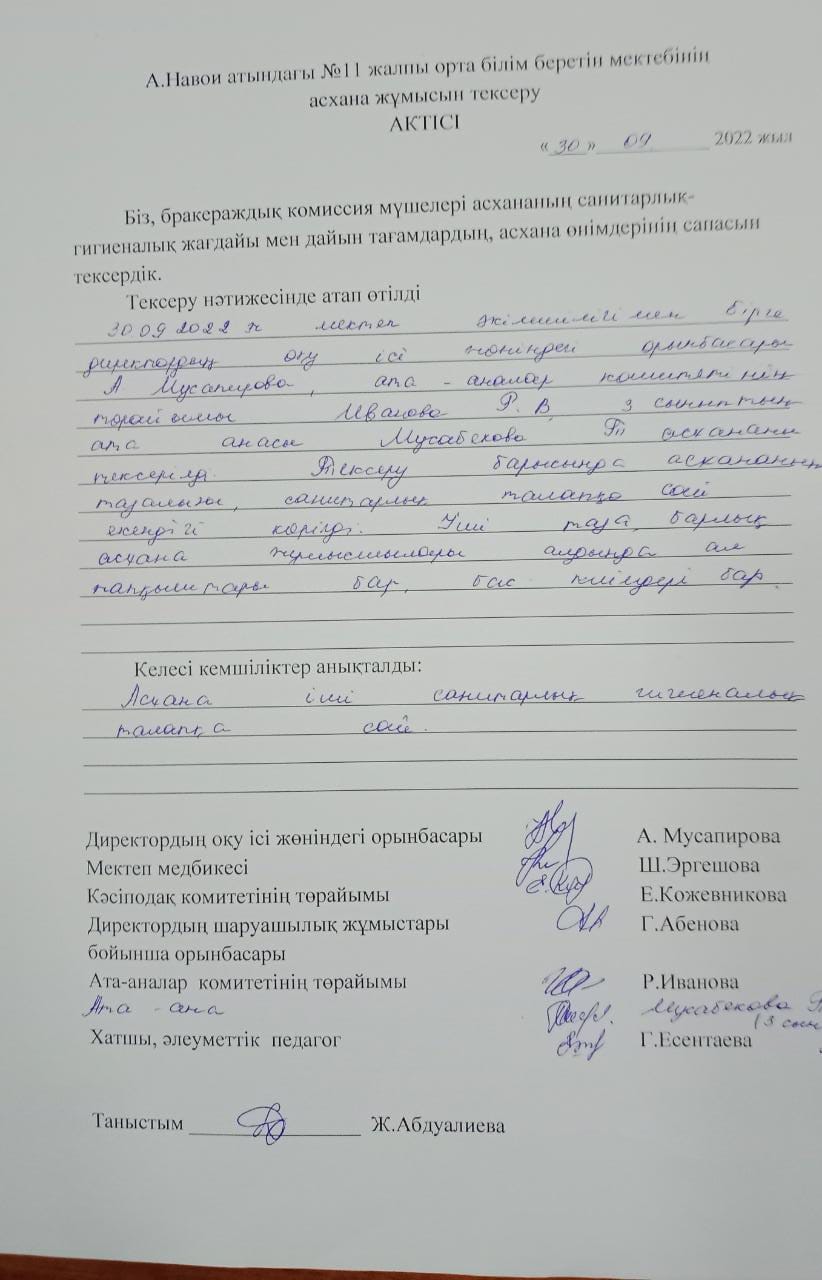 А.Навои атындағы №11 жалпы орта білім беретін мектебінің
асхана жұмысын тексеру
АКТІСІ
«30» 09 2022 жыл
Біз, бракераждық комиссия мүшелері асхананың санитарлық-
гигиеналық жағдайы мен дайын тағамдардың, асхана өнімдерінің сапасын
тексердік.
Тексеру нәтижесінде атап өтілді
30.09.2022 ж мектеп әкімшілігі мен бірге
директордың оқу ісі жөніндегі орынбасары
А Мусапирова, ата - аналар комитетінің
төрайымы Иванова Р. В, 3 сыныптың
ата анасы Мусабекова асхананы
тексерілді. Тексеру барысында асхананың
тазалығы, санитарлық талапқа сай
екендігі көрілді. Іші таза, барлық
асхана жұмысшылары алдында ал
жапқыштары бар, бас киімдері бар.
Келесі кемшіліктер анықталды:
Асхана іші санитарлық гигиеналық
талапқа сай.
Директордың оқу ісі жөніндегі орынбасары А. Мусапирова
Мектеп медбикесі Ш.Эргешова
Кәсіподақ комитетінің төрайымы Е.Кожевникова
Директордың шаруашылық жұмыстары Г.Абенова
бойынша орынбасары
Ата-аналар комитетінің төрайымы Р.Иванова
Ата - ана Мусабекова
(3 сын
Хатшы, әлеуметтік педагог Г.Есентаева
Таныстым Ж.Абдуалиева